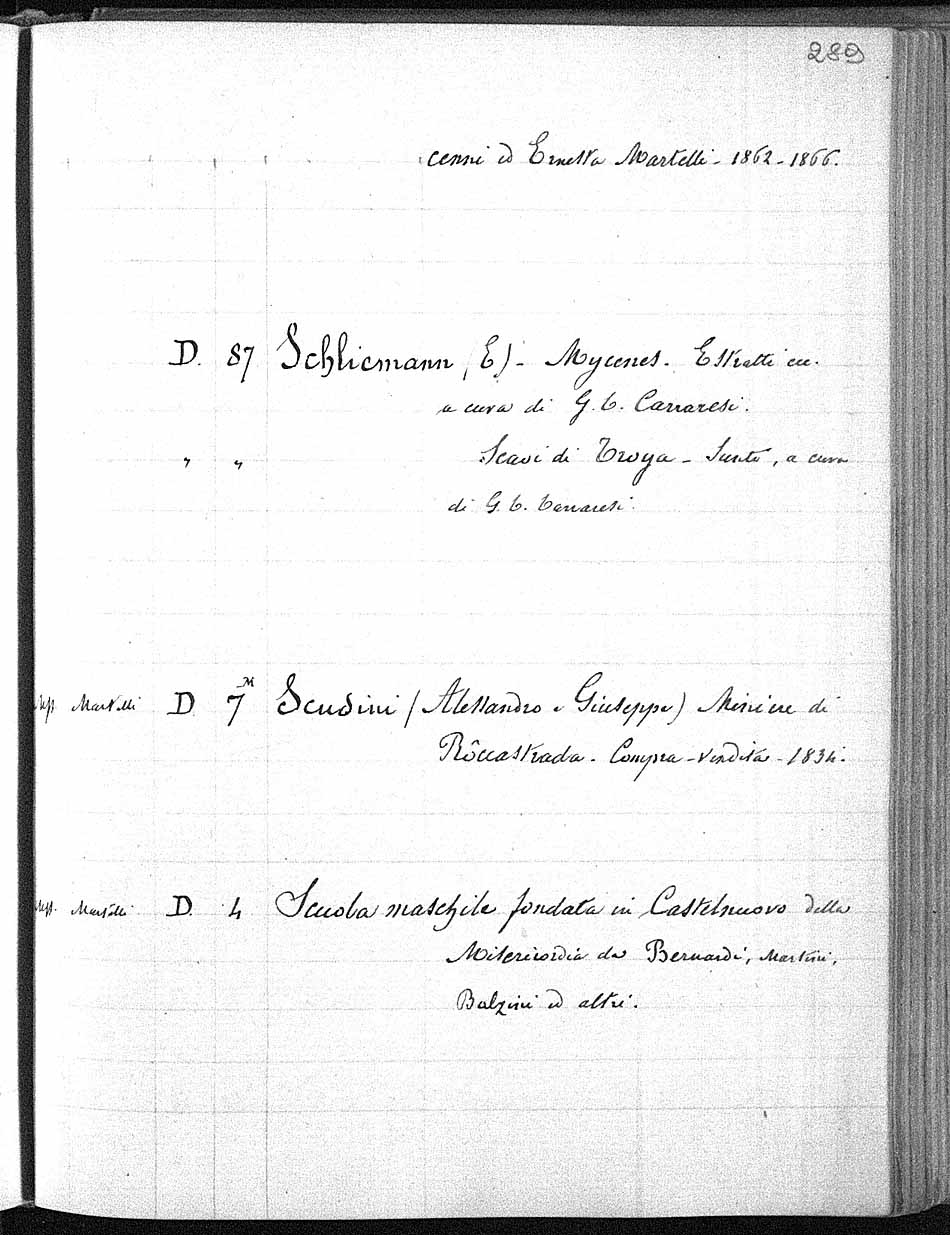 289
cenni ed Ernesta Martelli - 1862 - 1866.
D. 87 Schliemann (E) - Mycenes. Estratti ecc.
a cura di G. C. Carraresi.
" " Scavi di Troya - Sunto, a cura
di G. C. Carraresi.
Martelli D 7 M Scudini (Alessandro e Giuseppe) Miniere di
Roccastrada - Compra-vendita - 1834.
Martelli D. 4 Scuola maschile fondata in Castelnuovo della
Misericordia da Bernardi, Martini,
Balzini ed altri.